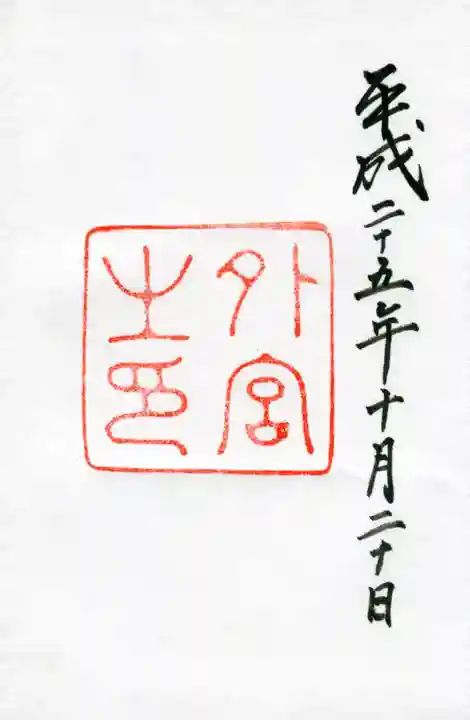 平成二十五年十月二十日
外宮
之印